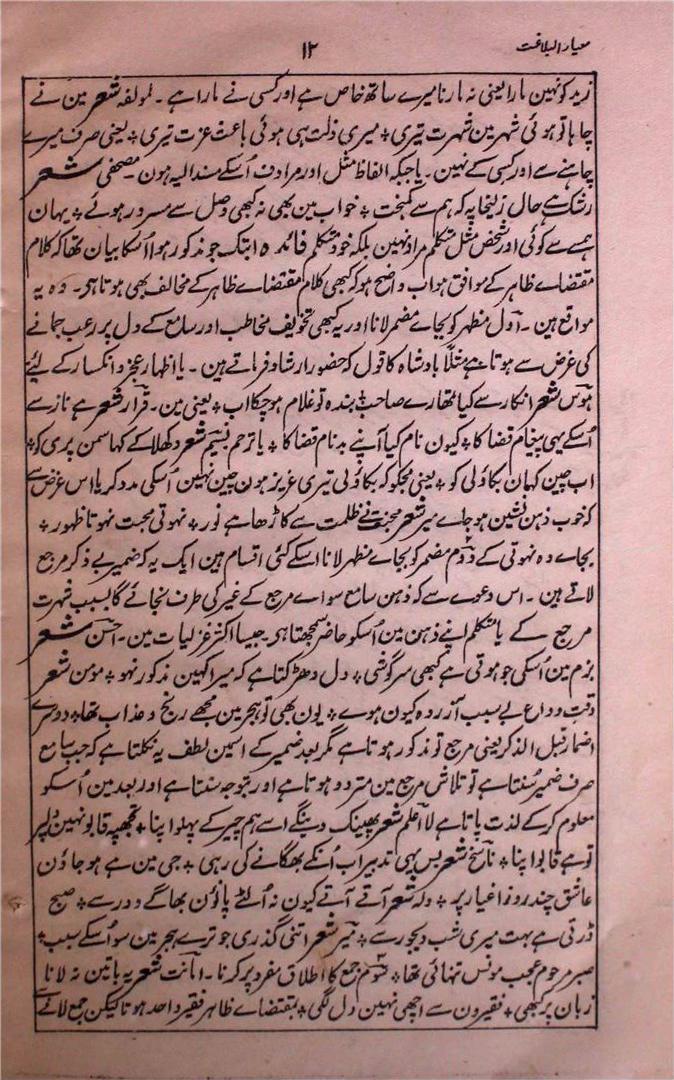 معیار البلاغت
۱۲
زید کو نہین مارا یعنی نہ مارنا میرے ساتھ خاص ہے اور کسی نے مارا ہے ۔ لمولفہ شعر مین نے
چاہا تو ہوئی شہر مین شہرت تیری ٭ میری ذلت ہی ہوئی باعث عزت تیری ٭ یعنی صرف میرے
چاہنے سے اور کسی کے نہین ۔ یا جبکہ الفاظ مثل اور مرادف اُسکے مسند الیہ ہون مصحفی شعر
رشک ہے حال زلیخا پہ کہ ہم سے کمبخت ٭ خواب مین بھی نہ کبھی وصل سے مسرور ہوئے ٭ یہان
ہم سے کوئی اور شخص مثل متکلم مراد نہین بلکہ خود متکلم فائدہ ابتک جو مذکور ہوا اُسکا بیان تھا کہ کلام
مقتضاے ظاہر کے موافق ہو اب واضح ہو کہ کبھی کلام مقتضاے ظاہر کے مخالف بھی ہوتا ہی ۔ وہ یہ
مواقع ہین ۔ اول مظہر کو بجاے مضمر لانا اور یہ کبھی تخویف مخاطب اور سامع کے دل پر رعب جمانے
کی غرض سے ہوتا ہے مثلاً بادشاہ کا قول کہ حضور ارشاد فرماتے ہین ۔ یا اظہار عجز و انکسار کے لیے
ہوس شعر انکار سے کیا تمہارے صاحب ٭ بندہ تو غلام ہو چکا اب ٭ یعنی مین ۔ قرار شعر ہے ناز سے
اُسکے یہی پیغام قضا کا ٭ کیون نام کیا آپنے بدنام قضا کا ٭ یا ترحم نسیم شعر دکھلا کے کہا سمن پری کو ٭
اب چین کہان بکاولی کو ٭ یعنی مجکو کہ بکاولی تیری عزیز ہون چین نہین اُسکی مدد کر یا اس غرض سے
کہ خوب ذہن نشین ہو جاے میر شعر محبت نے ظلمت سے کاڑھا ہے نور ٭ نہوتی محبت نہوتا ظہور ٭
بجاے وہ نہوتی کے دوم مضمر کو بجاے مظہر لانا اسکے کئی اقسام ہین ایک یہ کہ ضمیر بے ذکر مرجع
لاتے ہین ۔ اس دعوے سے کہ ذہن سامع سواے مرجع کے غیر کی طرف نجائے گا بسبب شہرت
مرجع کے یا متکلم اپنے ذہن مین اُسکو حاضر سمجھتا ہی جیسا اکثر غزلیات مین ۔ احسن شعر
بزم مین اُسکی جو ہوتی ہے کبھی سرگوشی ٭ دل دھڑکتا ہے کہ میرا کہین مذکور نہو ٭ مومن شعر
وقت وداع بے سبب آزردہ کیون ہوے ٭ یون بھی تو ہجر مین مجھے رنج و عذاب تھا ٭ دوسرے
اضمار قبل الذکر یعنی مرجع تو مذکور ہوتا ہے مگر بعد ضمیر کے اسمین لطف یہ نکلتا ہے کہ جب سامع
صرف ضمیر سُنتا ہے تو تلاش مرجع مین متردد ہوتا ہے اور بتوجہ سنتا ہے اور بعد مین اُسکو
معلوم کر کے لذت پاتا ہے لا اعلم شعر پھینک دینگے اسے ہم چیر کے پہلو اپنا ٭ تجھپہ قابو نہین دل پر
تو ہے قابو اپنا ٭ ناسخ شعر بس یہی تدبیر اب اُنکے بھگانے کی رہی ٭ جی مین ہے ہو جاؤن
عاشق چند روز اغیار پر ٭ ولہ شعر آتے آتے کیون نہ اُلٹے پاؤن بھاگے دور سے ٭ صبح
ڈرتی ہے بہت میری شب دیجور سے ٭ میر شعر اتنی گذری جو ترے ہجر مین سو اُسکے سبب ٭
صبر مرحوم عجب مونس تنہائی تھا ٭ سوم جمع کا اطلاق مفرد پر کرنا ۔ امانت شعر یہ باتین نہ لانا
زبان پر کبھی ٭ فقیرون سے اچھی نہین دل لگی ٭ بمقتضاے ظاہر فقیر واحد ہوتا لیکن جمع لائے